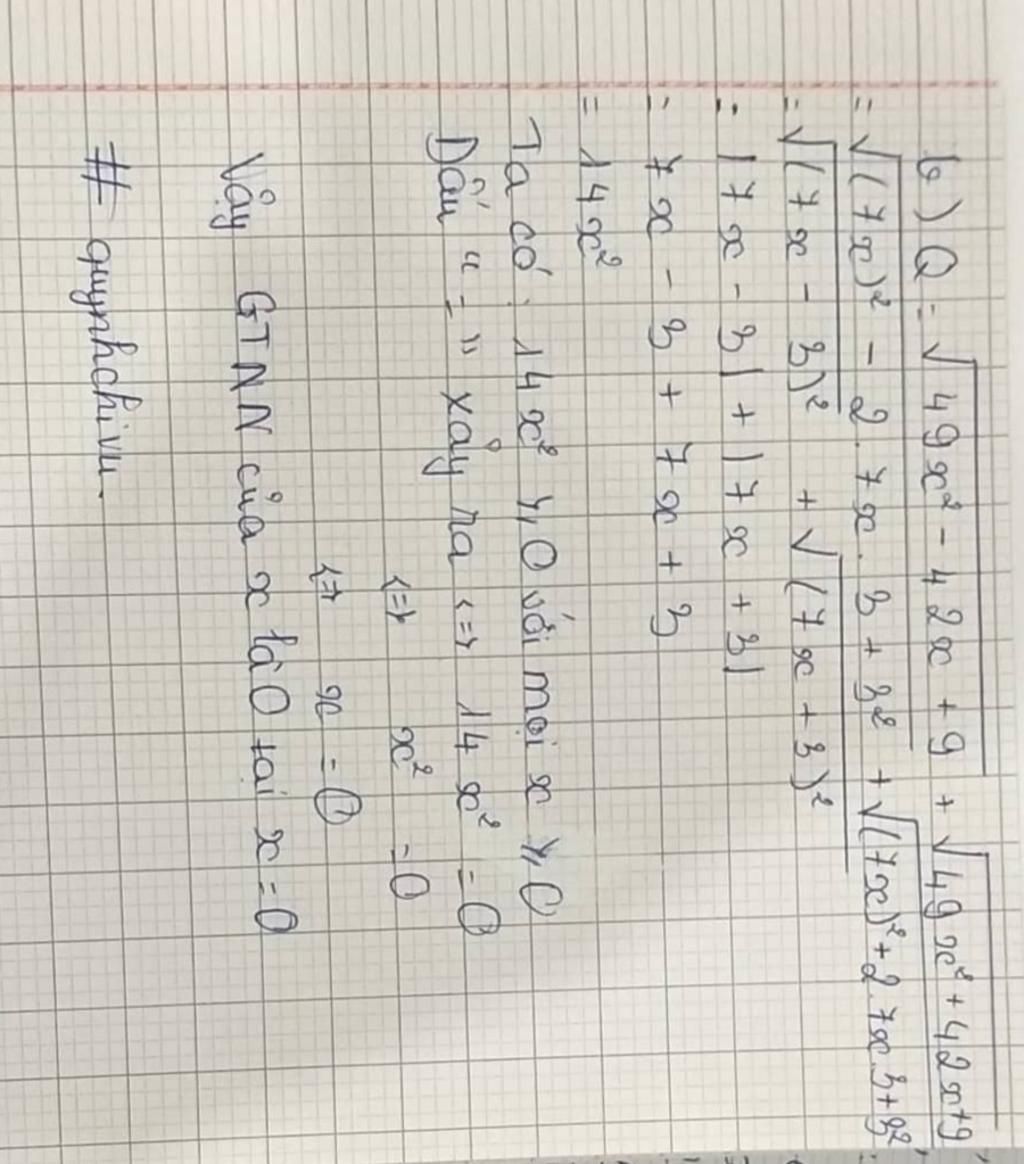 b) Q = √(49x² - 42x + 9) + √(49x² + 42x + 9)
= √((7x)² - 2.7x.3 + 3²) + √((7x)² + 2.7x.3 + 3²)
= √((7x - 3)²) + √((7x + 3)²)
= |7x - 3| + |7x + 3|
= 7x - 3 + 7x + 3
= 14x²
Ta có: 14x² ≥ 0 với mọi x ≥ 0
Dấu "=" xảy ra <=> 14x² = 0
<=> x² = 0
<=> x = 0
Vậy GTNN của x là 0 tại x = 0
# quynhchivu.